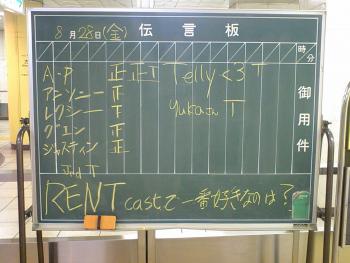 8月28日(金) 伝言板
時 分
御用件
A.P 正正T Telly<3 T
アンソニー 正
レクシー 下 Yukaさん T
グエン 正
ジャスティン 正
RENT castで一番好きなのは?